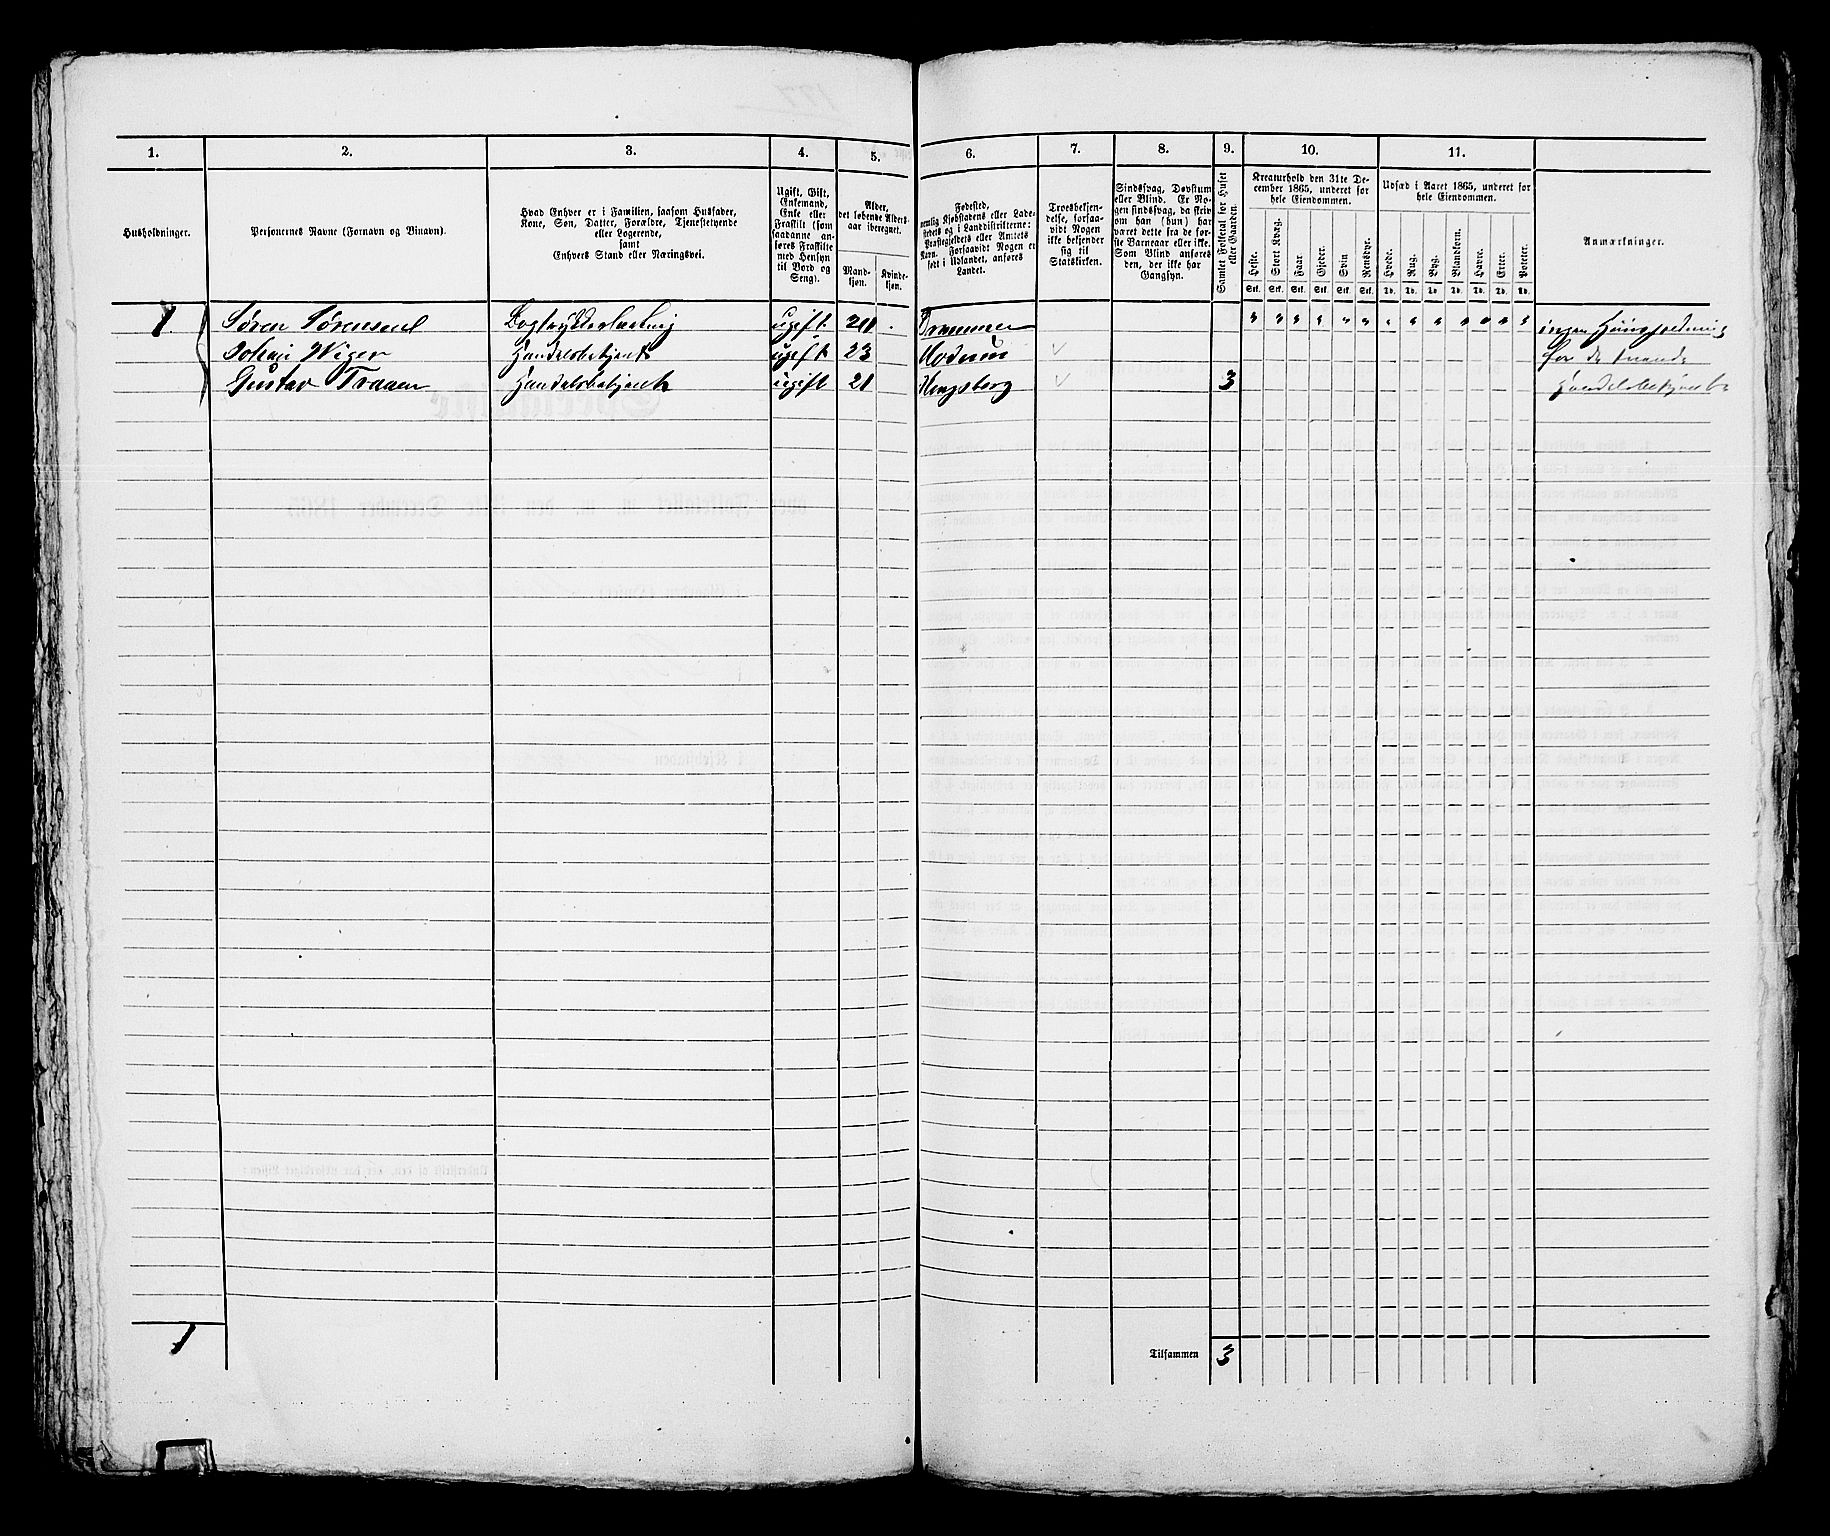 1. 2. 3. 4. 5. 6. 7. 8. 9. 10. 11.
Husholdninger.
Personernes Navne (Fornavn og Tilnavn).
Hvad Enhver er i Familien, saasom Husfader,
Kone, Søn, Datter, Forældre, Tjenestetyende
eller Logerende,
samt
Enhvers Stand eller Næringsvei.
Ugift, Gift,
Enkemand,
Enke eller
Fraskilt (som
saadanne an-
føres Fraskilte
med Hensyn
til Bord og
Seng).
Alder,
det løbende Alders-
aar iberegnet.
Mand-
kjøn.
Kvinde-
kjøn.
Fødested,
nemlig Kjøbstadens eller Lade-
stedets og i Landdistrikterne:
Præstegjeldets eller Amtets
Navn. Forsaavidt Nogen er
født i Udlandet, anføres
Landet.
Troesbekjen-
delse, forsaa-
vidt Nogen
ikke bekjender
sig til
Statskirken.
Sindssvag, Døvstum
eller Blind. Er No-
gen sindssvag, da skriv
om han (hun) har
været dette fra de før-
ste Barneaar eller ikke.
Som Blind anføres
den, der ikke har
Gangsyn.
Samlet Folketal for Huset
eller Gaarden.
Kreaturhold den 31te De-
cember 1865, underet før
hele Eiendommen.
Heste. Stort Kvæg. Faar. Gjeder. Svin Rensdyr.
Stk. Stk. Stk. Stk. Stk. Stk.
Udsæd i Aaret 1865, underet før
hele Eiendommen.
Hvede. Rug. Byg. Blandkorn. Havre. Erter. Poteter.
Td. Td. Td. Td. Td. Td. Td.
Anmærkninger.
1 Søren Sørensen ugift
Johan Wiger Handelsbetjent ugift 23 Modum
Gustav Traaen Handelsbetjent ugift 21 Kongsberg 3
ingen
for de
Handelsbetjente
1
Tilsammen 3